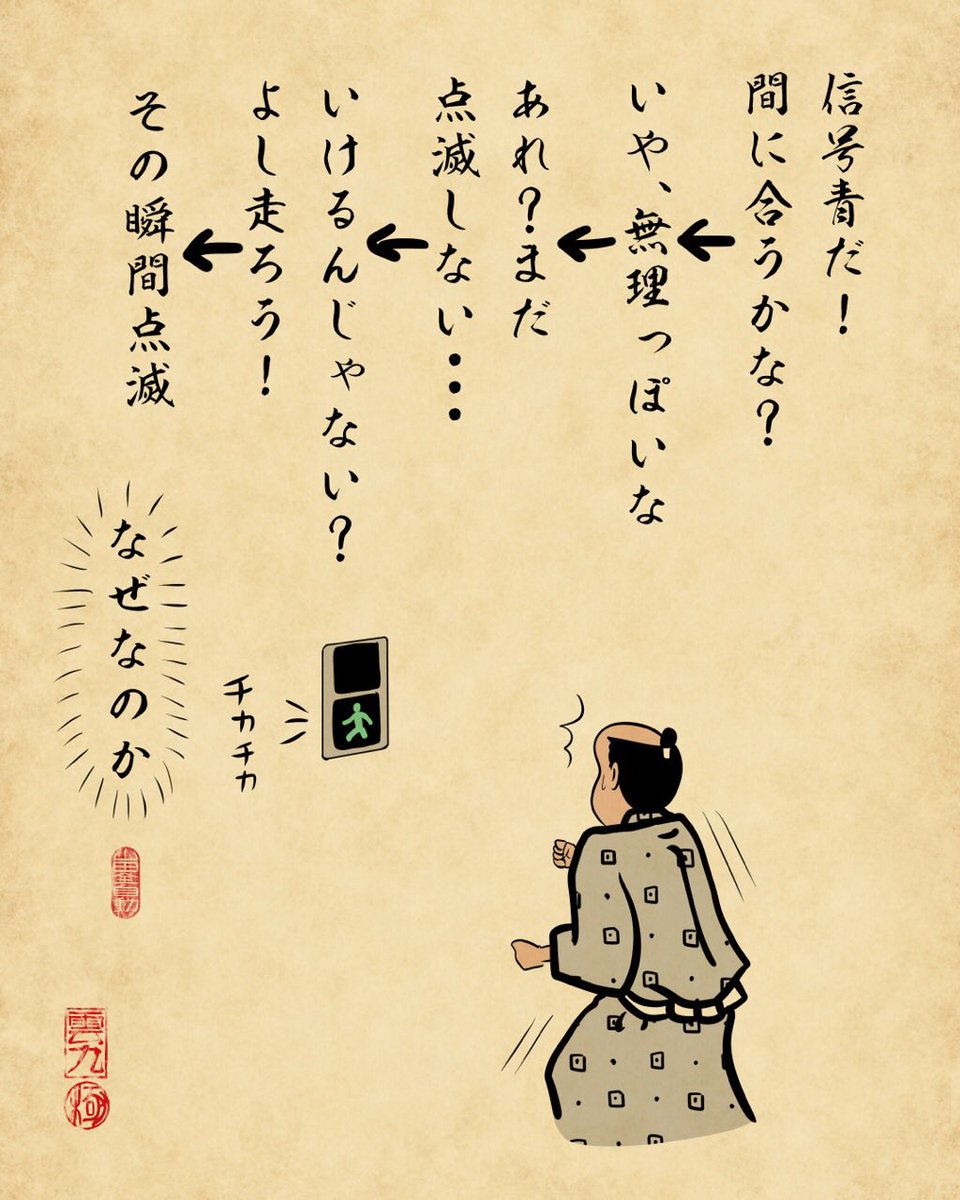 信号青だ！
間に合うかな？
いや、無理っぽいな
あれ？まだ
点滅しない・・・
いけるんじゃない？
よし走ろう！
その瞬間点滅
なぜなのか
チカチカ